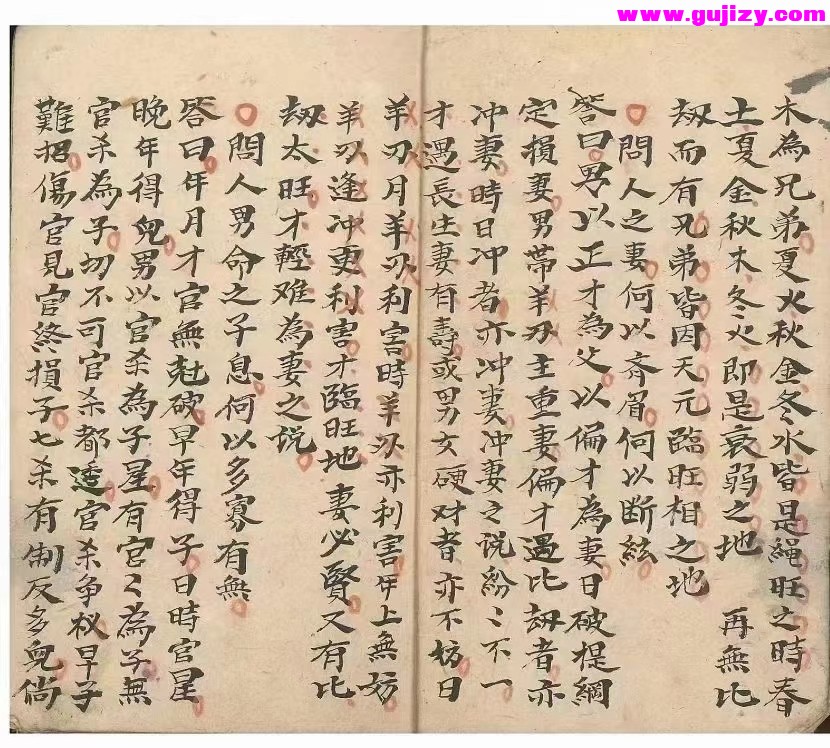 www.gujizy.com
木為兄弟夏火秋金冬水皆是绳旺之時春
土夏金秋木冬火即是衰弱之地 再無比
刼而有兄弟皆因天元臨旺相之地
問人之妻何以齐眉何以断絃
答曰男以正才為父以偏才為妻日破提綱
定損妻男帯羊刃主重妻偏才遇比刼者亦
冲妻時日冲者亦冲妻冲妻之说紛〻不一
才遇長生妻有壽或男女硬对者亦不妨日
羊刃月羊刃利害時羊刃亦利害年上無妨
羊刃逢冲更利害才臨旺地妻必賢又有比
刼太旺才輕难為妻之说
問人男命之子息何以多寡有無
答曰年月才官無尅破早年得子日時官星
晚年得兒男以官杀為子星有官〻為子無
官杀為子切不可官杀都透官杀争权早子
難招傷官見官終損子七杀有制反多兒倘